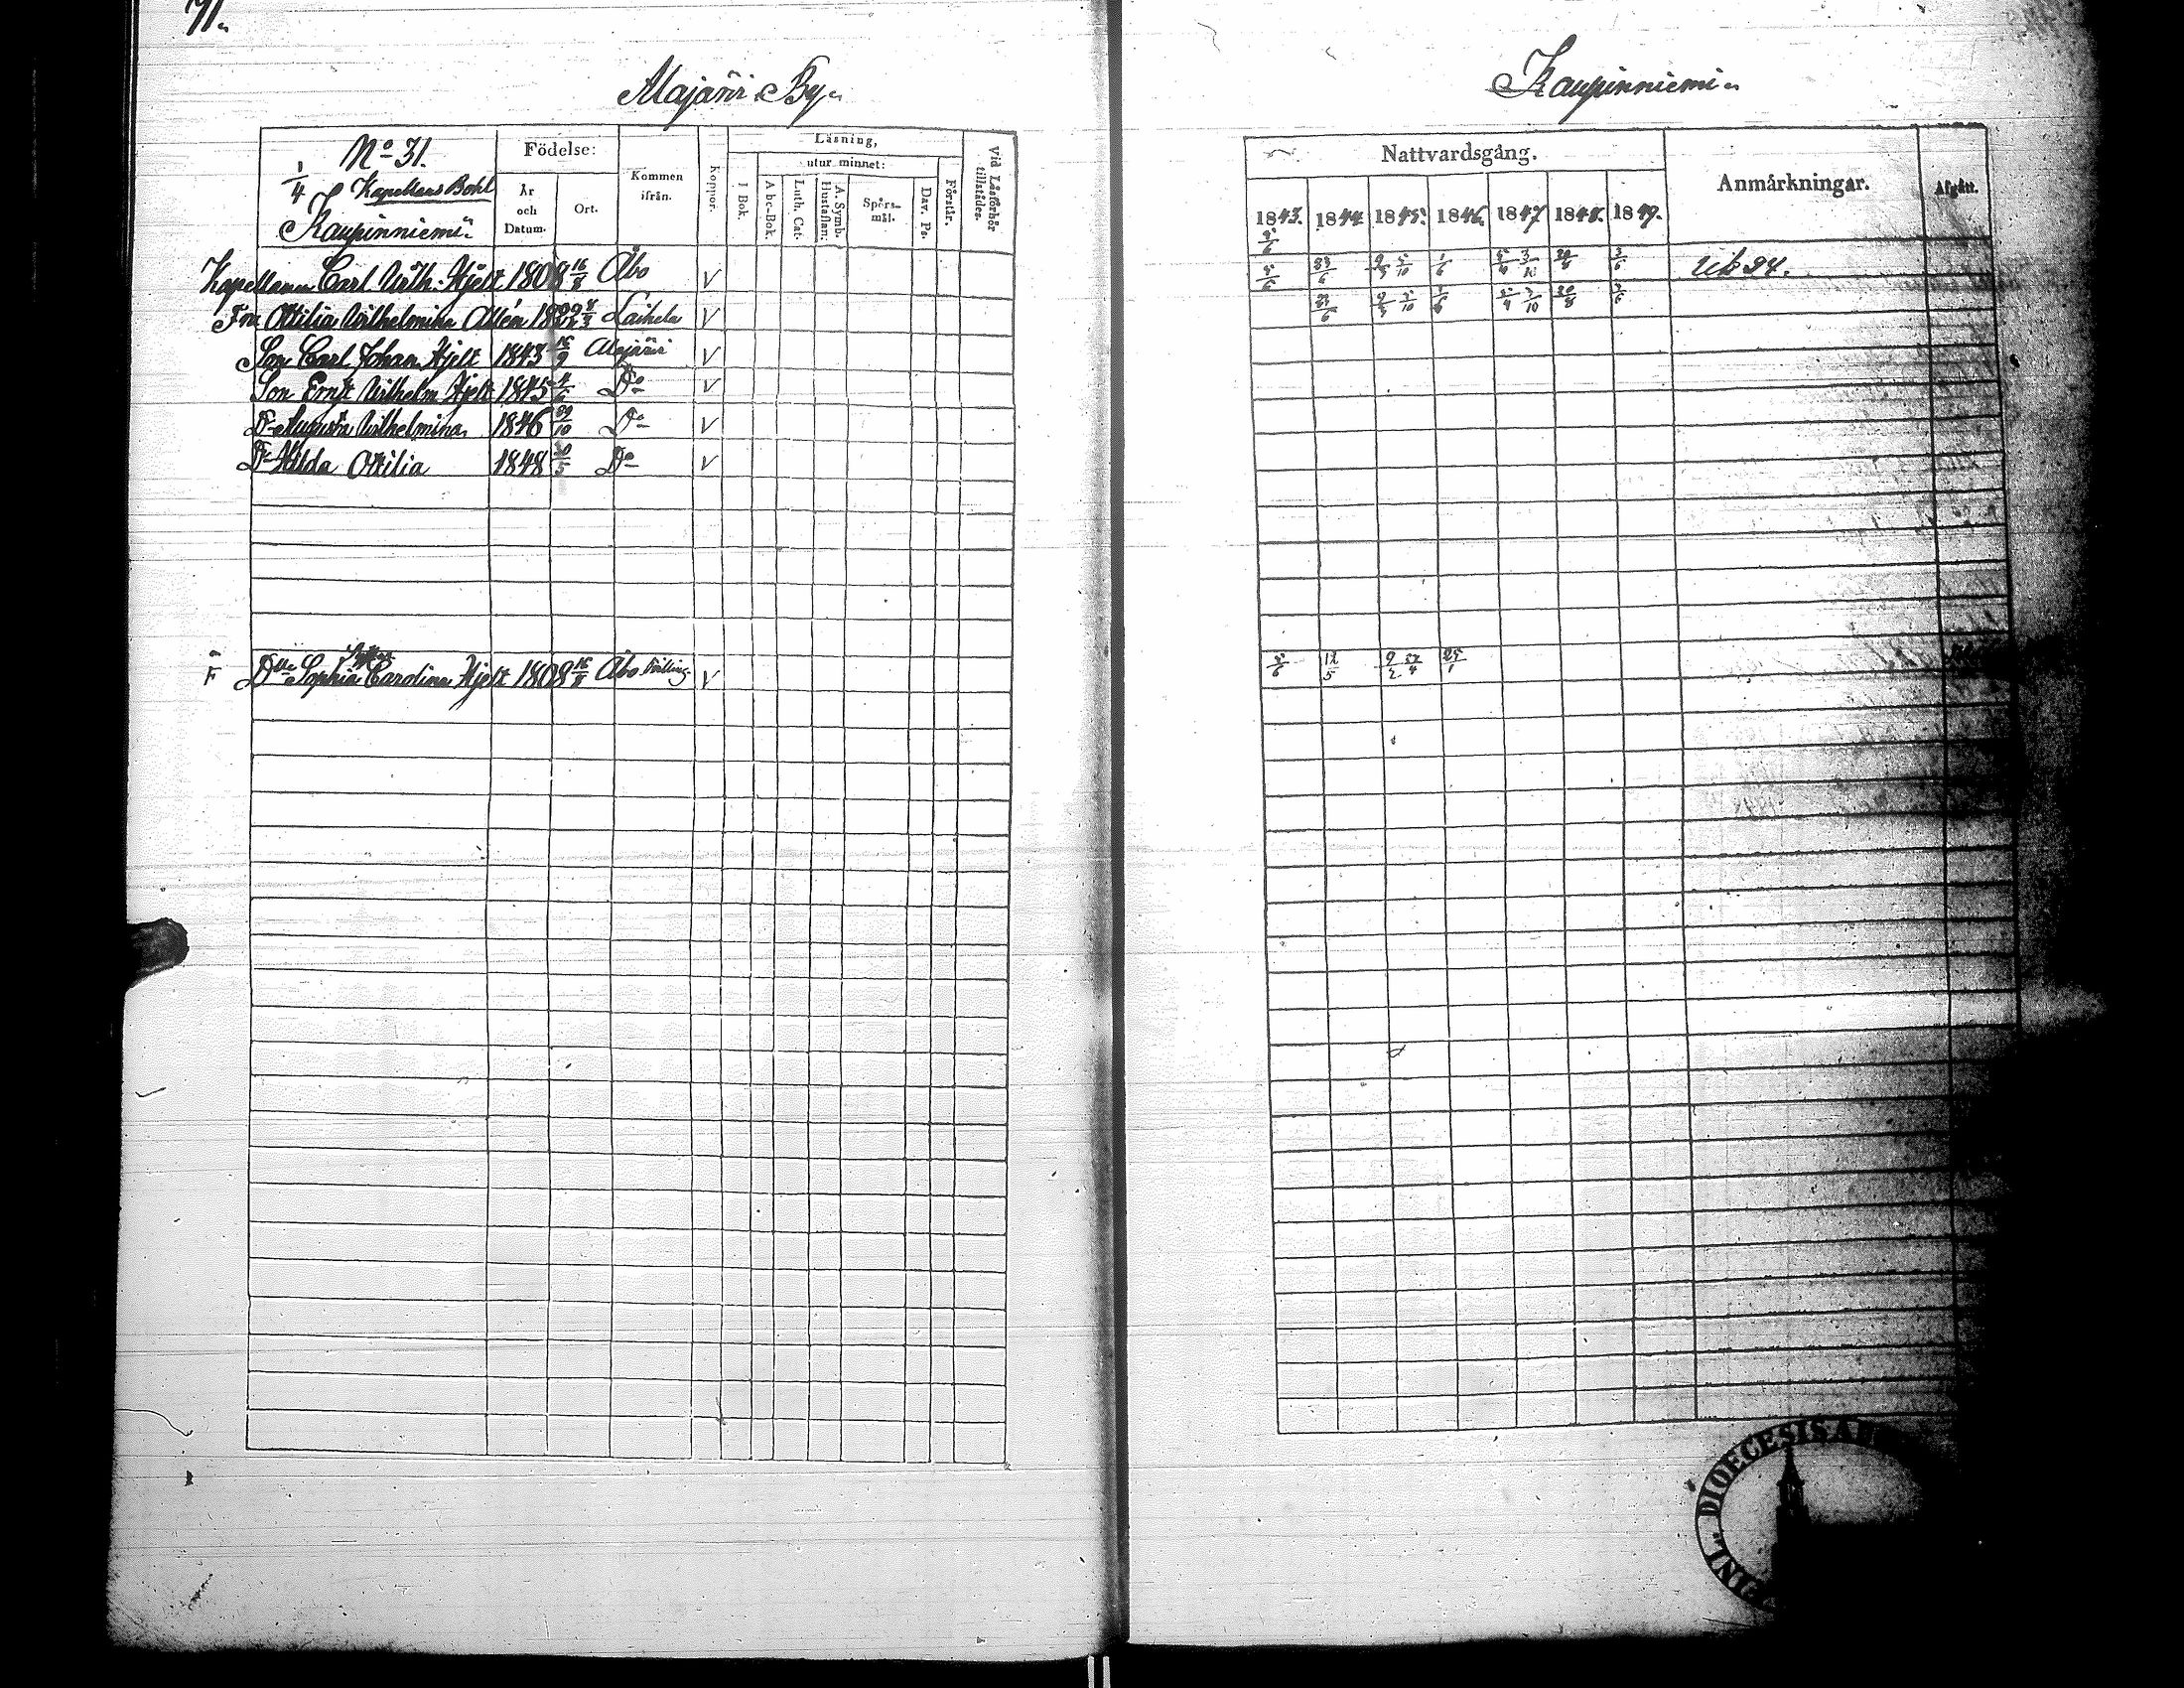 71.
Alajärvi By.
No 31.
1/4 Kapellans Bohl
Kaupinniemi.
Födelse:
År och Datum.
Ort.
Kommen ifrån.
Koppor.
Läsning,
utur minnet:
I Bok.
Abc-Bok.
Luth. Cat.
A. Symb. Hustaflan:
Spörs-mål.
Dav. Ps.
Förstår.
Vid Läsförhör tillstädes.
Kapellanen Carl Wilh. Hjelt 1808 16/8 Åbo V
Fru Ottilia Wilhelmina Alén 18 8/3 Laihela V
Son Carl Johan Hjelt 1843 16/9 Alajärvi V
Son Ernst Wilhelm Hjelt 1845 4/6 Do V
Dr Augusta Wilhelmina 1846 10 Do V
Dr Hilda Ottilia 1848 20/5 Do V
F Dlle Sophia Carolina Hjelt 1808 16/8 Åbo tvilling. V
Kaupinniemi.
Nattvardsgång.
Anmärkningar.
Afgått.
1843. 1844. 1845. 1846. 1847. 1848. 1849.
5/6 23/6 9/3 5/10 1/6 5/4 3/10 30/8 3/6
23/6 9/3 5/10 1/6 5/4 3/10 30/8 3/6
5/6 12/5 25/1
DIOECESIS